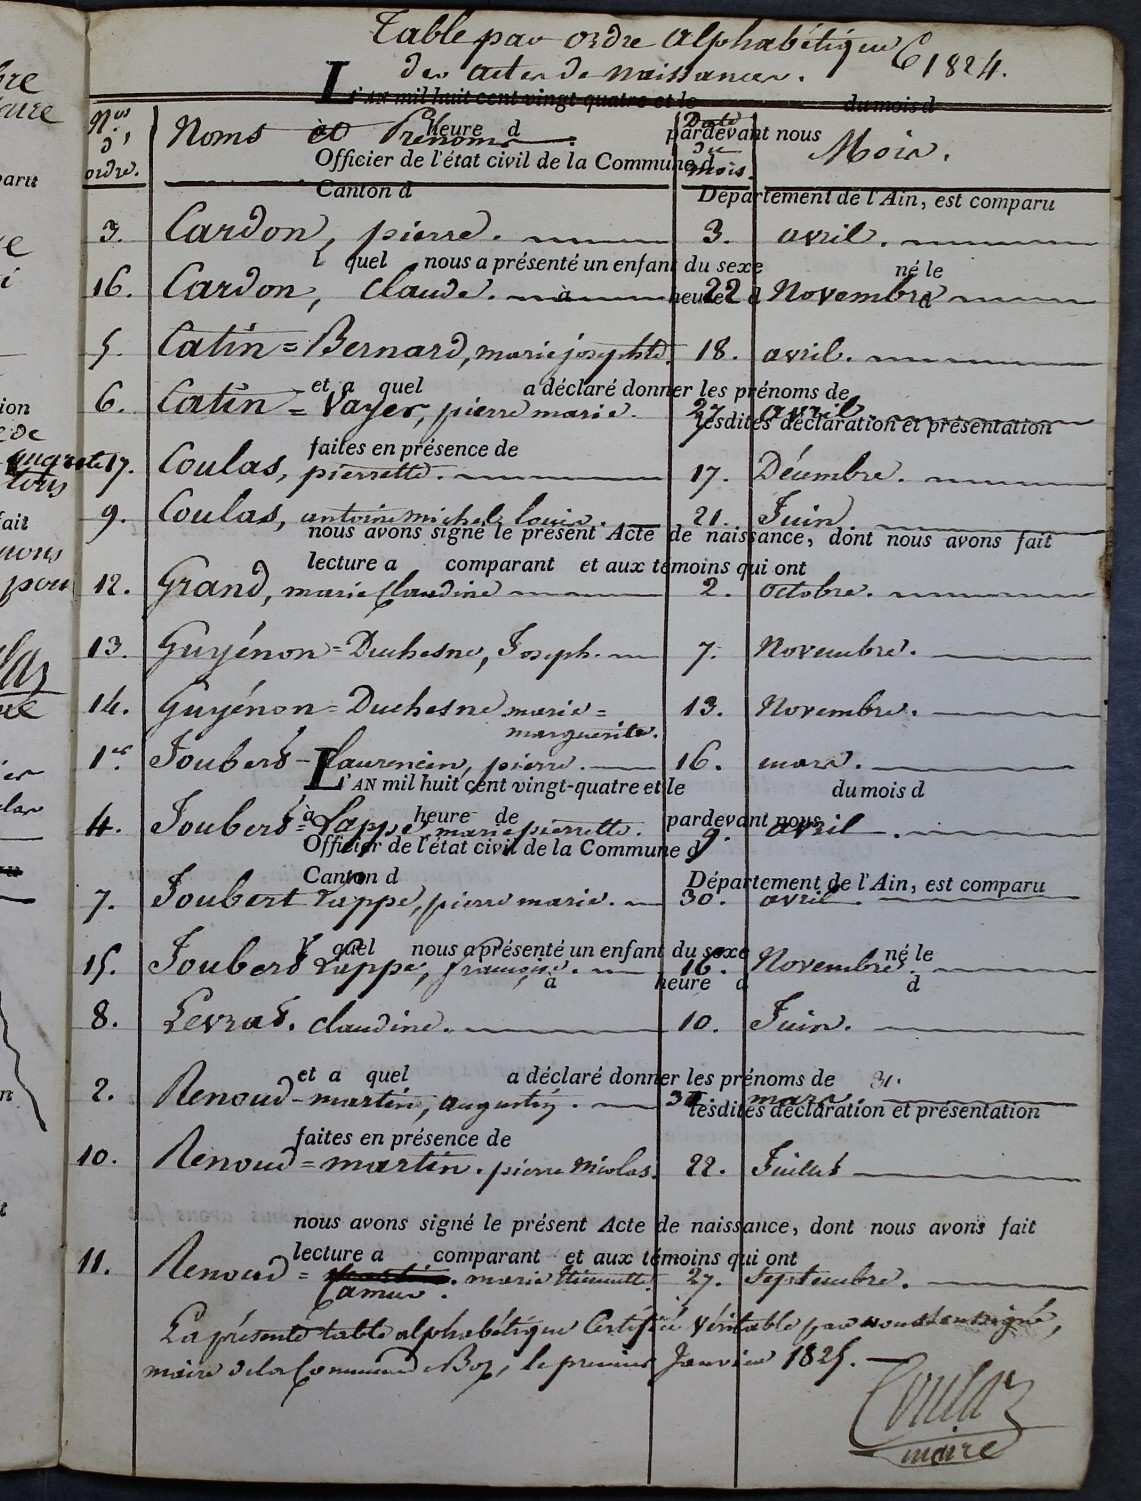 Table par ordre alphabétique
des actes de naissances. 1824.
L'AN mil huit cent vingt-quatre et le du mois d
Nos d'ordre. Noms et Prénoms. Date du mois. Mois.
à heure d pardevant nous
Officier de l'état civil de la Commune d
Canton d Département de l'Ain, est comparu
3. Cardon, pierre. 3. avril.
l quel nous a présenté un enfant du sexe né le
16. Cardon, Claude. 22 Novembre
à heure d d
5. Catin = Bernard, marie josephte. 18. avril.
et a quel a déclaré donner les prénoms de
6. Catin = Vayer, pierre marie. 27. avril.
lesdites déclaration et présentation
faites en présence de
17. Coulas, pierrette. 17. Décembre.
9. Coulas, antoine michel louis. 21. Juin.
nous avons signé le présent Acte de naissance, dont nous avons fait
lecture a comparant et aux témoins qui ont
12. Grand, marie Claudine 2. octobre.
13. Guyénon = Duchesne, Joseph. 7. Novembre.
14. Guyénon = Duchesne marie = 13. Novembre.
marguerite.
1er. Joubert - Laurencin, pierre. 16. mars.
L'AN mil huit cent vingt-quatre et le du mois d
à heure de pardevant nous
4. Joubert = Lappe, marie pierrette. 9. avril.
Officier de l'état civil de la Commune d
Canton d Département de l'Ain, est comparu
7. Joubert Lappe, pierre marie. 30. avril.
l quel nous a présenté un enfant du sexe né le
15. Joubert Lappe, françoise. 16. Novembre.
à heure d d
8. Levrat. claudine. 10. Juin.
et a quel a déclaré donner les prénoms de 31.
2. Renoud - martin, augustin. mars.
lesdites déclaration et présentation
faites en présence de
10. Renoud = martin. pierre Nicolas. 22. Juillet
nous avons signé le présent Acte de naissance, dont nous avons fait
lecture a comparant et aux témoins qui ont
11. Renoud = marie 27. septembre.
Camus.
La présente table alphabétique Certifiée Véritable par nous soussigné,
maire de la Commune de Boz, le premier Janvier 1825.
Coulas
maire